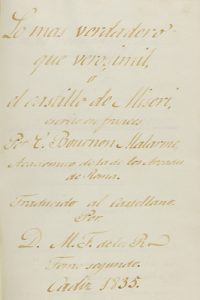 Lo mas verdadero
que verosimil,
o
el castillo de Miseri,
escrito en frances
Por C. Bournon Malarme,
Academica de la de los Arcades
de Roma.
Traducido al Castellano.
Por
D. M. F. de la R.
Tomo segundo.
Cadiz 1835.